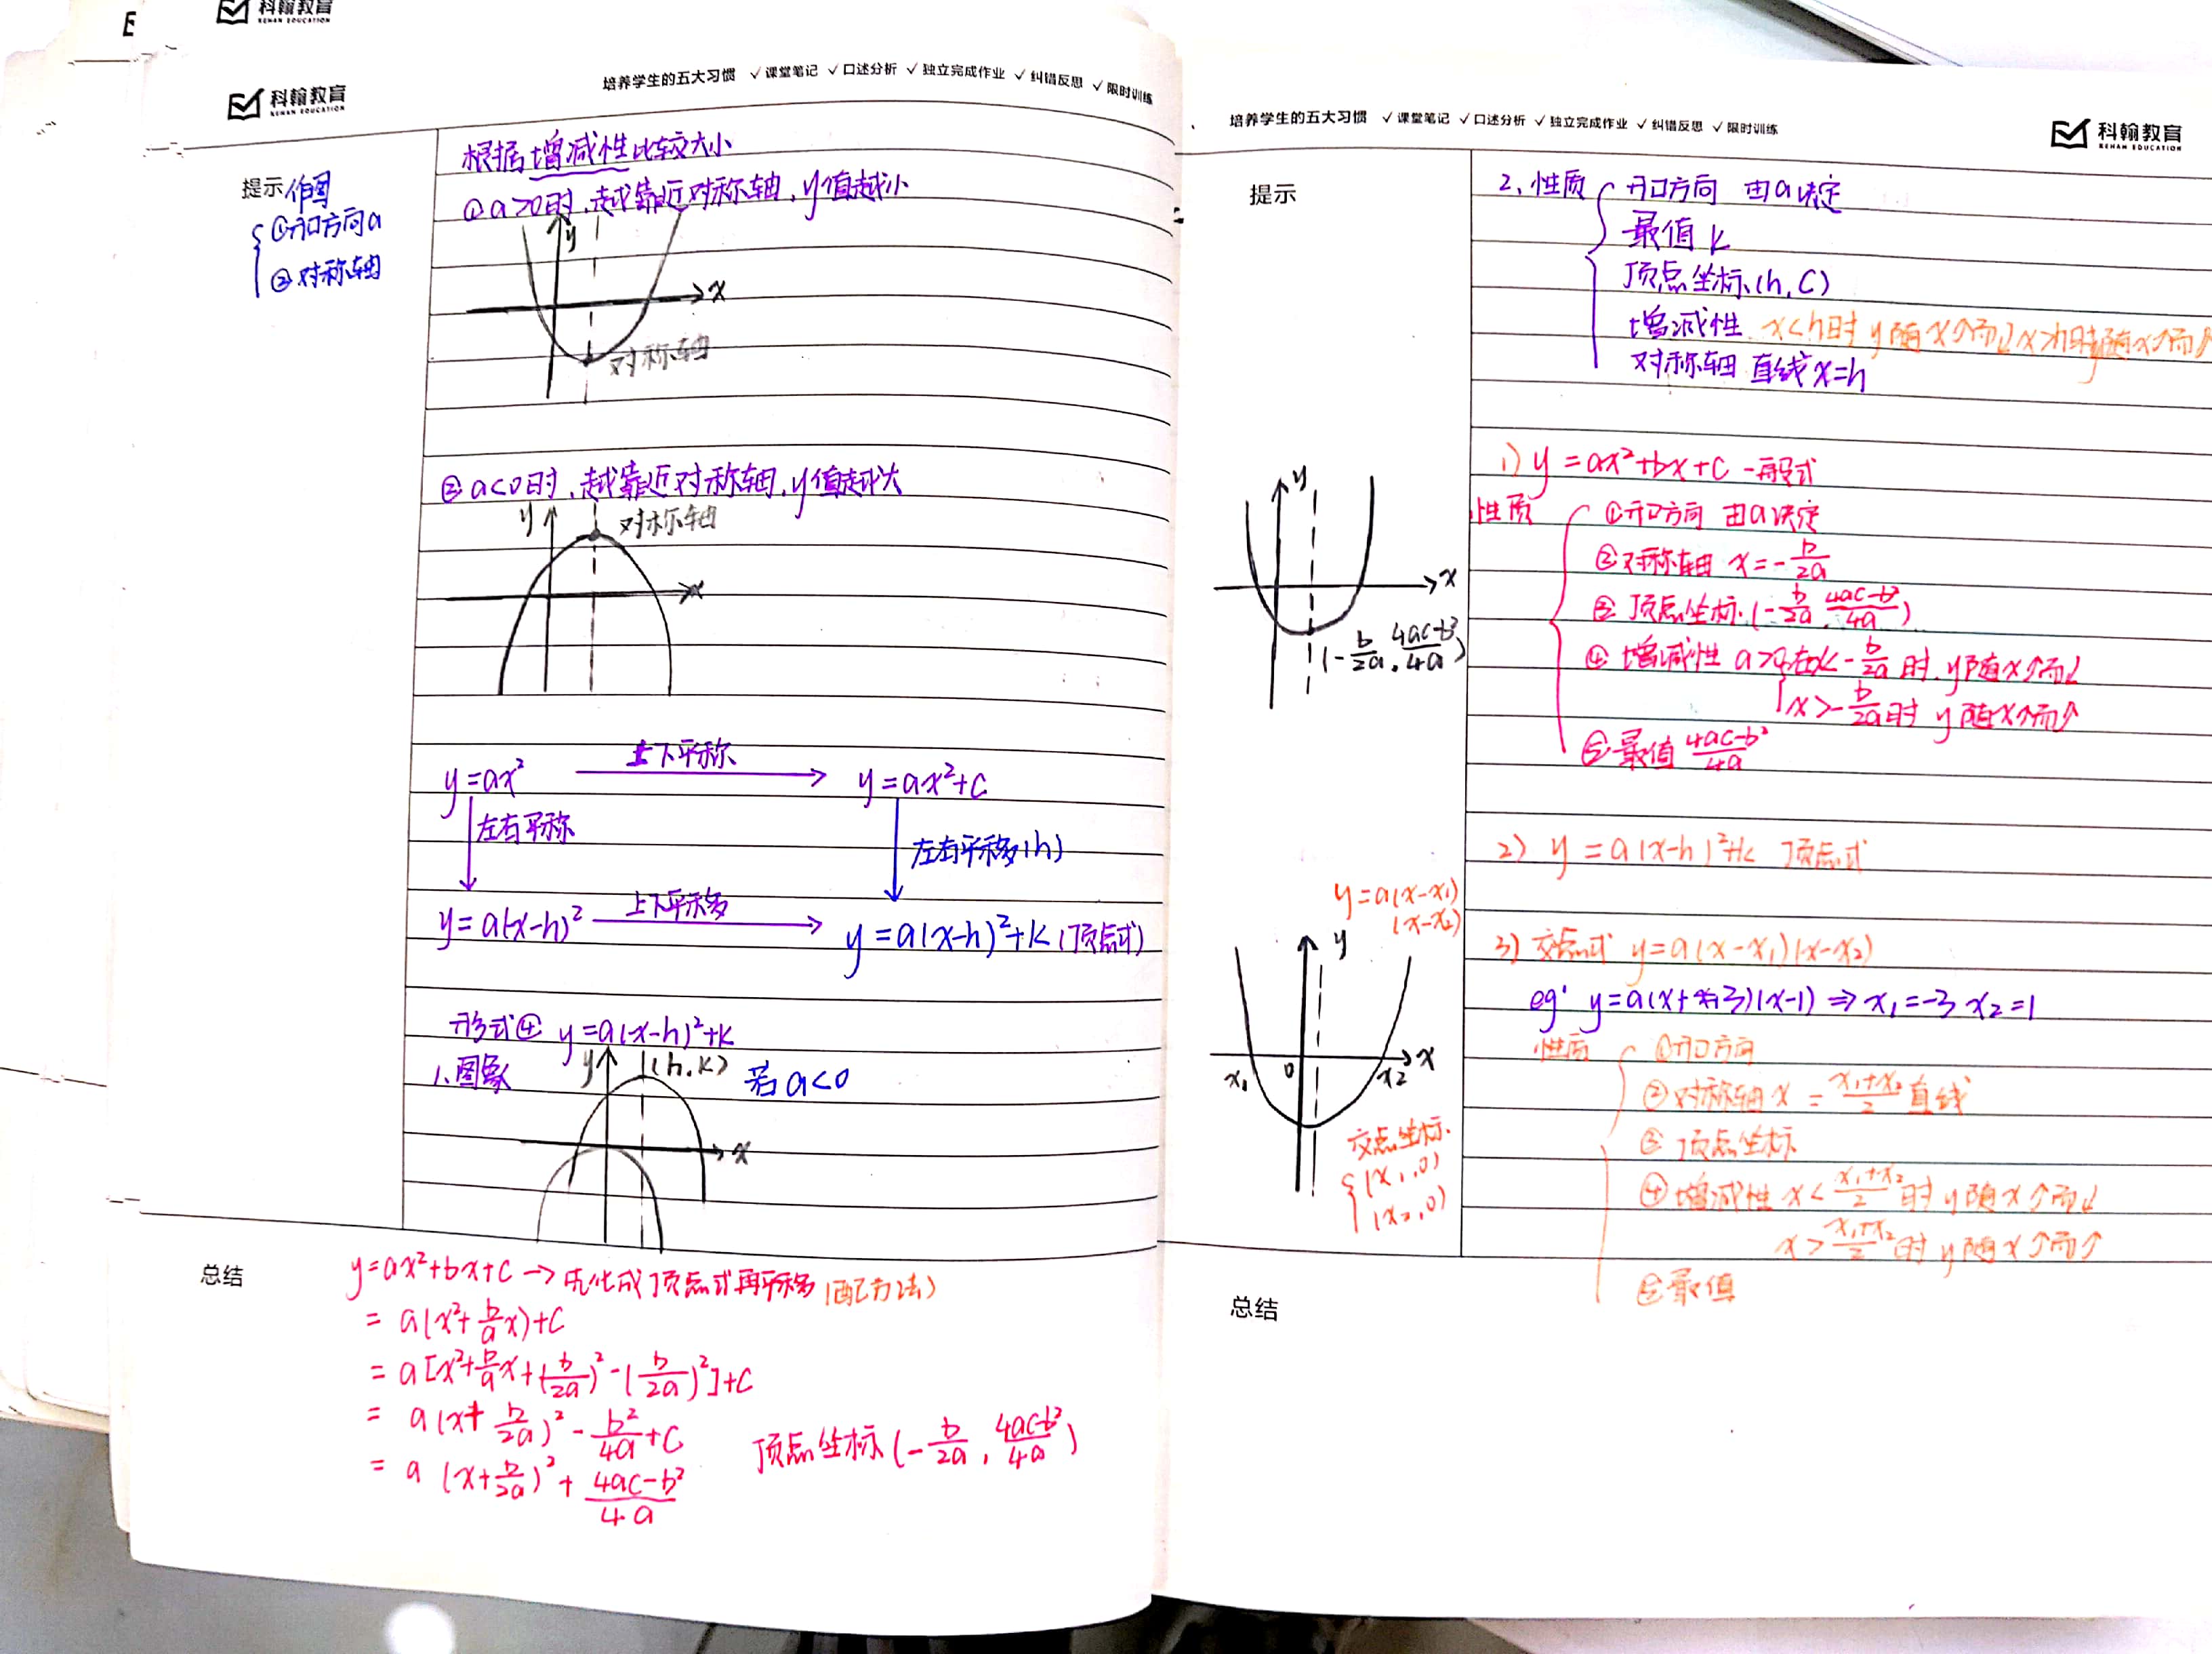 科翰教育
KEHAN EDUCATION
科翰教育
KEHAN EDUCATION
培养学生的五大习惯 ✓课堂笔记 ✓口述分析 ✓独立完成作业 ✓纠错反思 ✓限时训练
提示 作图
①开口方向a
②对称轴
根据增减性比较大小
①a>0时,越靠近对称轴,y值越小
y
x
对称轴
②a<0时,越靠近对称轴,y值越大
y
对称轴
x
y=ax² 上下平称 y=ax²+c
左右平称 左右平移(h)
y=a(x-h)² 上下平移 y=a(x-h)²+k(顶点式)
形式④ y=a(x-h)²+k
1.图象 y (h,k) 若a<0
x
总结
y=ax²+bx+c→先化成顶点式再平移(配方法)
=a(x²+b/a x)+c
=a[x²+b/a x+(b/2a)²-(b/2a)²]+c
=a(x+b/2a)²-b²/4a+c
=a(x+b/2a)²+(4ac-b²)/4a
顶点坐标(-b/2a,(4ac-b²)/4a)
培养学生的五大习惯 ✓课堂笔记 ✓口述分析 ✓独立完成作业 ✓纠错反思 ✓限时训练
科翰教育
KEHAN EDUCATION
提示
2,性质 开口方向 由a决定
最值 k
顶点坐标(h,C)
增减性 x<h时 y随x↑而↓ x>h时y随x↑而↑
对称轴 直线x=h
y
x
(-b/2a,(4ac-b²)/4a)
1) y=ax²+bx+c 一般式
性质 ①开口方向 由a决定
②对称轴 x=-b/2a
③顶点坐标(-b/2a,(4ac-b²)/4a)
④增减性 a>0,在x<-b/2a时,y随x↑而↓
x>-b/2a时 y随x↑而↑
⑤最值 (4ac-b²)/4a
2) y=a(x-h)²+k 顶点式
y=a(x-x₁)
(x-x₂)
y
x₁ 0 x₂ x
交点坐标.
(x₁,0)
(x₂,0)
3) 交点式 y=a(x-x₁)(x-x₂)
eg: y=a(x+3)(x-1)⇒x₁=-3 x₂=1
性质 ①开口方向
②对称轴 x=(x₁+x₂)/2 直线
③顶点坐标
④增减性 x<(x₁+x₂)/2时 y随x↑而↓
x>(x₁+x₂)/2时 y随x↑而↑
⑤最值
总结